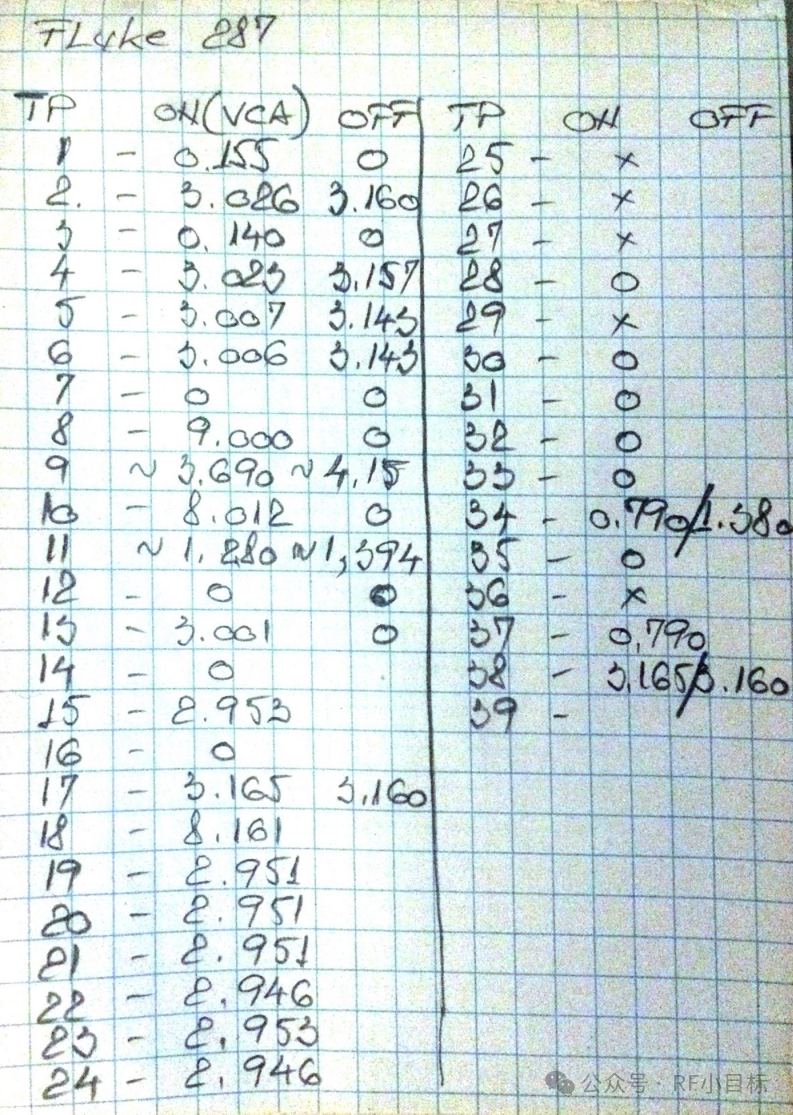 FLuke 287
TP ON(VCA) OFF
1 - 0.155 0
2. - 3.026 3.160
3 - 0.140 0
4 - 3.023 3.157
5 - 3.007 3.143
6 - 3.006 3.143
7 - 0 0
8 - 9.000 0
9 ~ 3.690 ~ 4.15
10 - 8.012 0
11 ~ 1.280 ~ 1,394
12 - 0 0
13 - 3.001 0
14 - 0
15 - 2.953
16 - 0
17 - 3.165 3.160
18 - 8.161
19 - 2.951
20 - 2.951
21 - 2.951
22 - 2.946
23 - 2.953
24 - 2.946
TP ON OFF
25 - x
26 - x
27 - x
28 - 0
29 - x
30 - 0
31 - 0
32 - 0
33 - 0
34 - 0.790/1.380
35 - 0
36 - x
37 - 0,790
38 - 3.165/3.160
39 -
公众号 · RF小目标